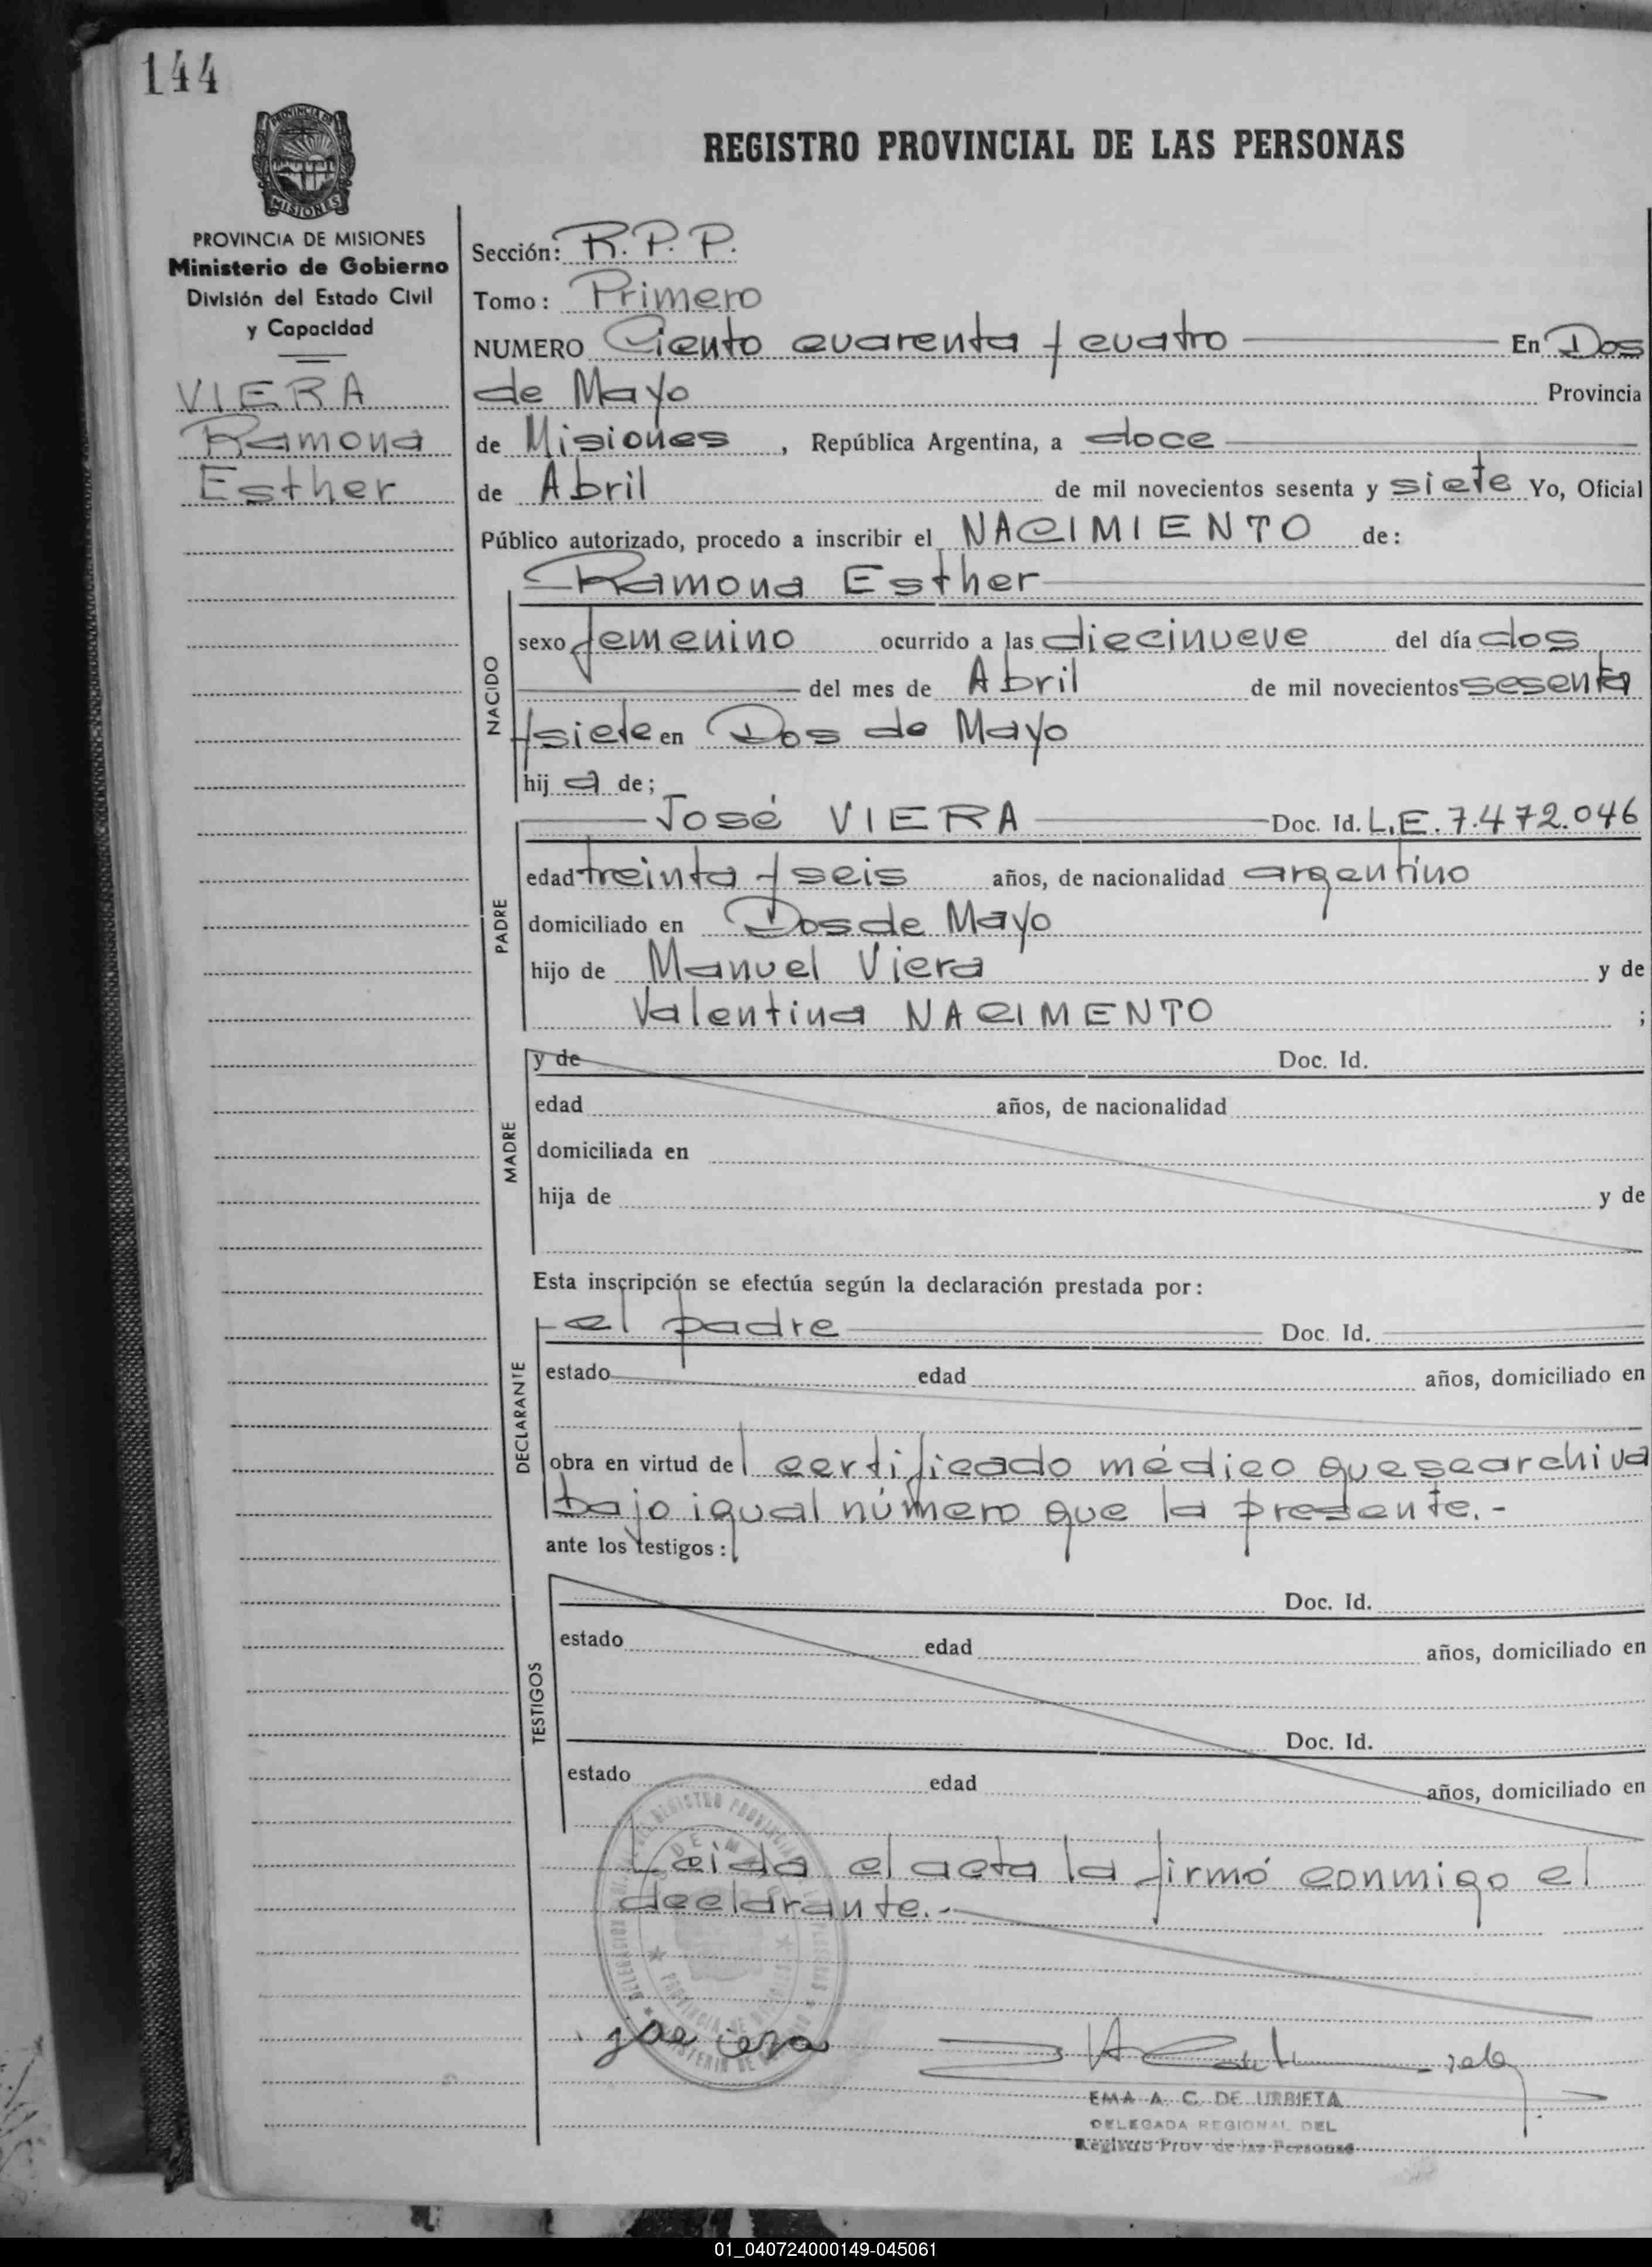 144
PROVINCIA DE
MISIONES
REGISTRO PROVINCIAL DE LAS PERSONAS
PROVINCIA DE MISIONES
Ministerio de Gobierno
División del Estado Civil
y Capacidad
VIERA
Ramona
Esther
Sección: R. P. P.
Tomo: Primero
NUMERO Ciento cuarenta y cuatro En Dos
de Mayo Provincia
de Misiones, República Argentina, a doce
de Abril de mil novecientos sesenta y siete Yo, Oficial
Público autorizado, procedo a inscribir el NACIMIENTO de:
Ramona Esther
NACIDO
sexo femenino ocurrido a las diecinueve del día dos
del mes de Abril de mil novecientos sesenta
y siete en Dos de Mayo
hij a de;
PADRE
José VIERA Doc. Id. L.E. 7.472.046
edad treinta y seis años, de nacionalidad argentino
domiciliado en Dos de Mayo
hijo de Manuel Viera y de
Valentina NACIMENTO ;
MADRE
y de Doc. Id.
edad años, de nacionalidad
domiciliada en
hija de y de
Esta inscripción se efectúa según la declaración prestada por:
DECLARANTE
el padre Doc. Id.
estado edad años, domiciliado en
obra en virtud del certificado médico que se archiva
bajo igual número que la presente.-
ante los testigos:
TESTIGOS
Doc. Id.
estado edad años, domiciliado en
Doc. Id.
estado edad años, domiciliado en
Leida el acta la firmó conmigo el
declarante.-
EMA A. C. DE URBIETA
DELEGADA REGIONAL DEL
Registro Prov de las Personas
01_040724000149-045061